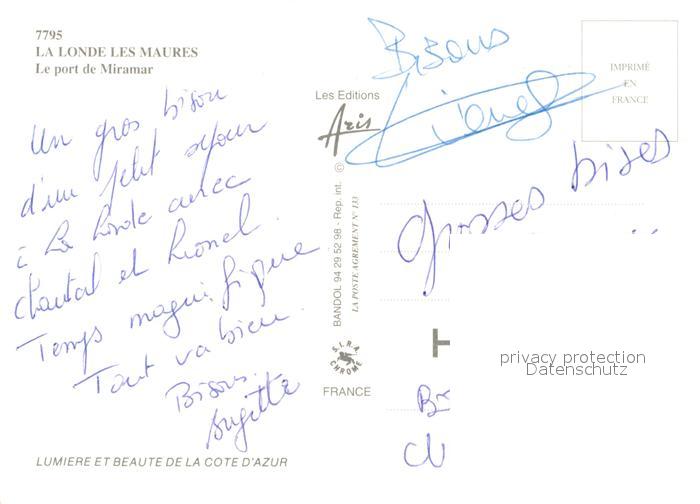 7795
LA LONDE LES MAURES
Le port de Miramar
Un gros bisou
d'un petit séjour
à La Londe avec
Chantal et Lionel.
Temps magnifique
Tout va bien.
Bisous.
Brigitte
LUMIERE ET BEAUTE DE LA COTE D'AZUR
Les Editions
Aris
©
BANDOL 94 29 52 98 - Rep. int.
LA POSTE AGREMENT N° 133
S.I.R.A.
CHROME
FRANCE
Bisous
Lionel
IMPRIMÉ
EN
FRANCE
Grosses bises
..
privacy protection
Datenschutz